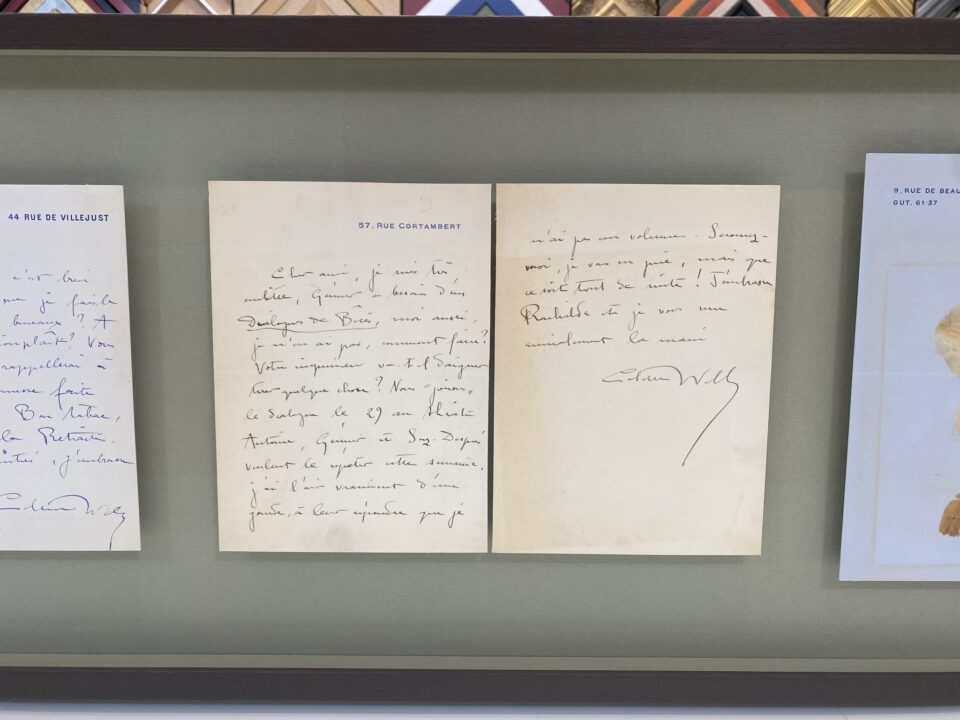 44 RUE DE VILLEJUST
c'est bien
que je faile
bureaux ? A
Vous
rappellerai à
faite
Bon tabac,
la Retraite.
j'embrasse
Colette Willy
57, RUE CORTAMBERT
Cher ami, je suis très
embêtée, Gémier a besoin d'un
Dialogues de Bêtes, moi aussi,
je n'en ai pas, comment faire?
Votre imprimeur va-t-il daigner
tirer quelque chose? Nous "jouons"
le dialogue le 29 au théâtre
Antoine, Gémier et Suz. Després
veulent le répéter cette semaine.
j'ai l'air vraiment d'une
gourde, à leur répondre que je
n'ai pas un volume. Secouez-
vous, je vous en prie, mais que
ce soit tout de suite! J'embrasse
Rachilde et je vous serre
amicalement la main
Colette Willy
9, RUE DE BEAU
GUT. 61-37